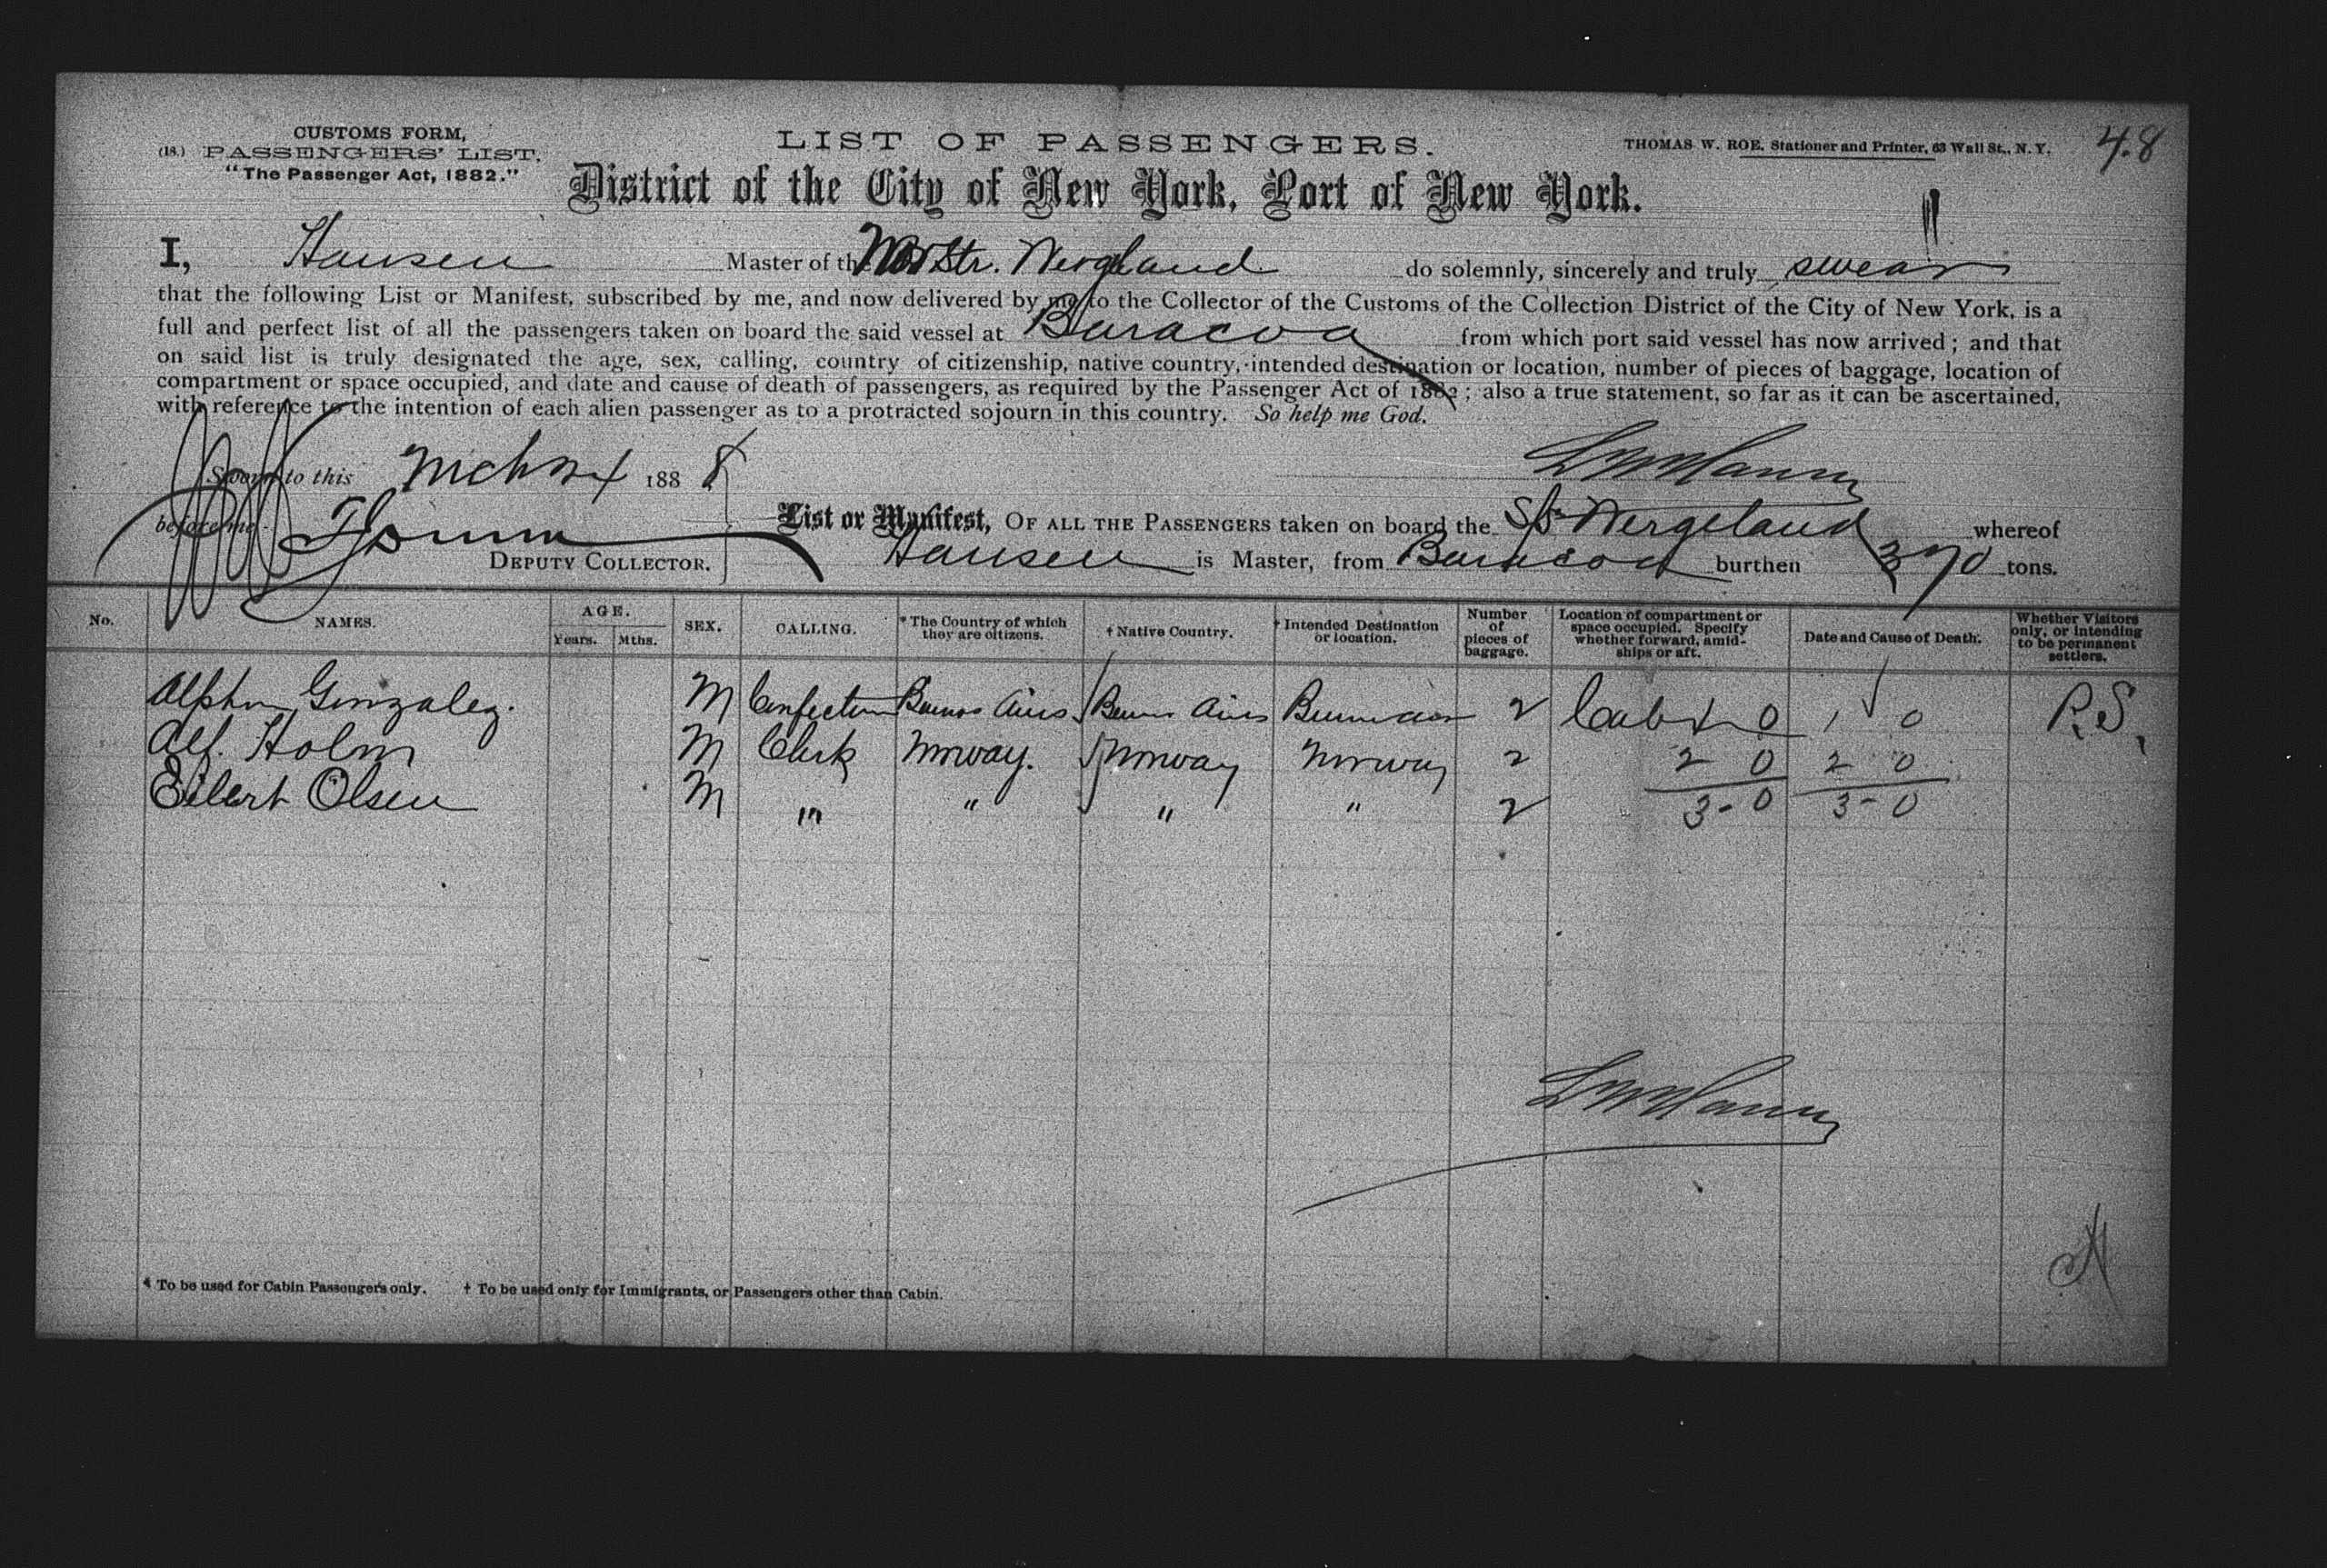 CUSTOMS FORM,
(18.) PASSENGERS' LIST.
"The Passenger Act, 1882."
LIST OF PASSENGERS.
THOMAS W. ROE, Stationer and Printer, 63 Wall St., N. Y.
48
District of the City of New York, Port of New York.
I, Hansen Master of the Nor Str. Wergeland do solemnly, sincerely and truly swear
that the following List or Manifest, subscribed by me, and now delivered by me to the Collector of the Customs of the Collection District of the City of New York, is a
full and perfect list of all the passengers taken on board the said vessel at Baracoa from which port said vessel has now arrived; and that
on said list is truly designated the age, sex, calling, country of citizenship, native country, intended destination or location, number of pieces of baggage, location of
compartment or space occupied, and date and cause of death of passengers, as required by the Passenger Act of 1882; also a true statement, so far as it can be ascertained,
with reference to the intention of each alien passenger as to a protracted sojourn in this country. So help me God.
Sworn to this Mch 188 8
before me
DEPUTY COLLECTOR.
List or Manifest, OF ALL THE PASSENGERS taken on board the S/S Wergeland whereof
Hansen is Master, from Baracoa burthen 370 tons.
No. NAMES. AGE. Years. Mths. SEX. CALLING. * The Country of which they are citizens. † Native Country. † Intended Destination or location. Number of pieces of baggage. Location of compartment or space occupied. Specify whether forward, amidships or aft. Date and Cause of Death. Whether Visitors only, or intending to be permanent settlers.
Gonzalez. M Buenos Aires Buenos Aires 2 1 0 P.S.
Alf. Holm M Clerk Norway. Norway Norway 2 2 0 2 0
Eilert Olsen M " " " " 2 3-0 3-0
* To be used for Cabin Passengers only. † To be used only for Immigrants, or Passengers other than Cabin.